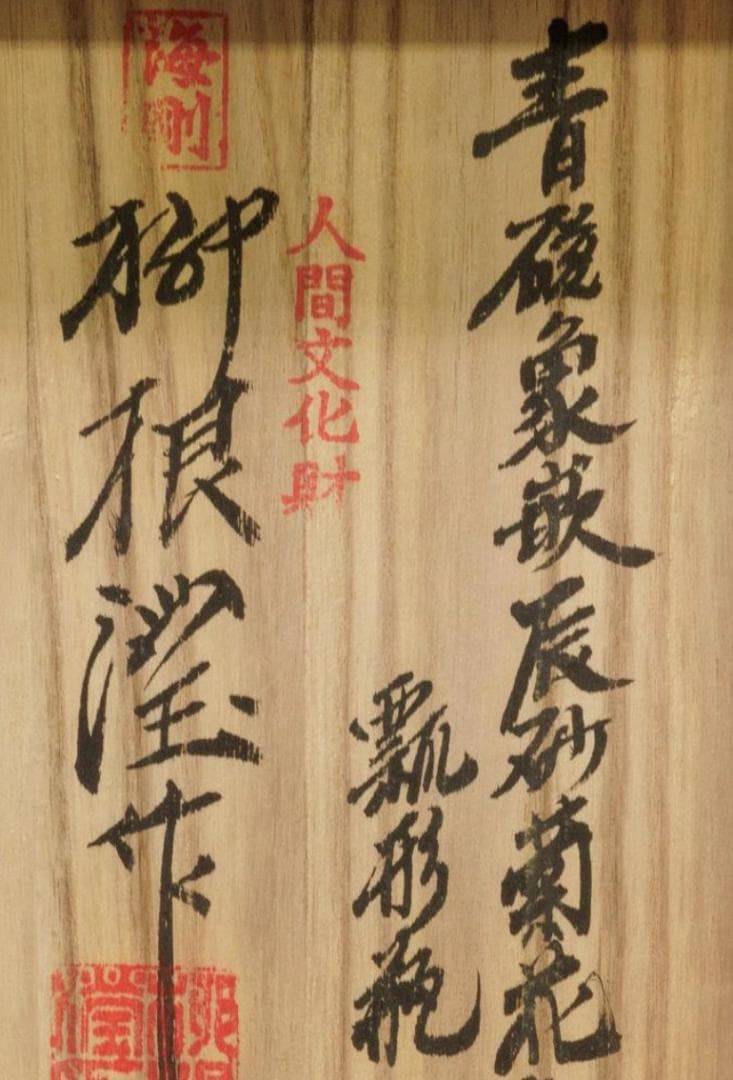 青磁象嵌辰砂菊花
瓢形瓶
人間文化財
海剛
柳根瀅作